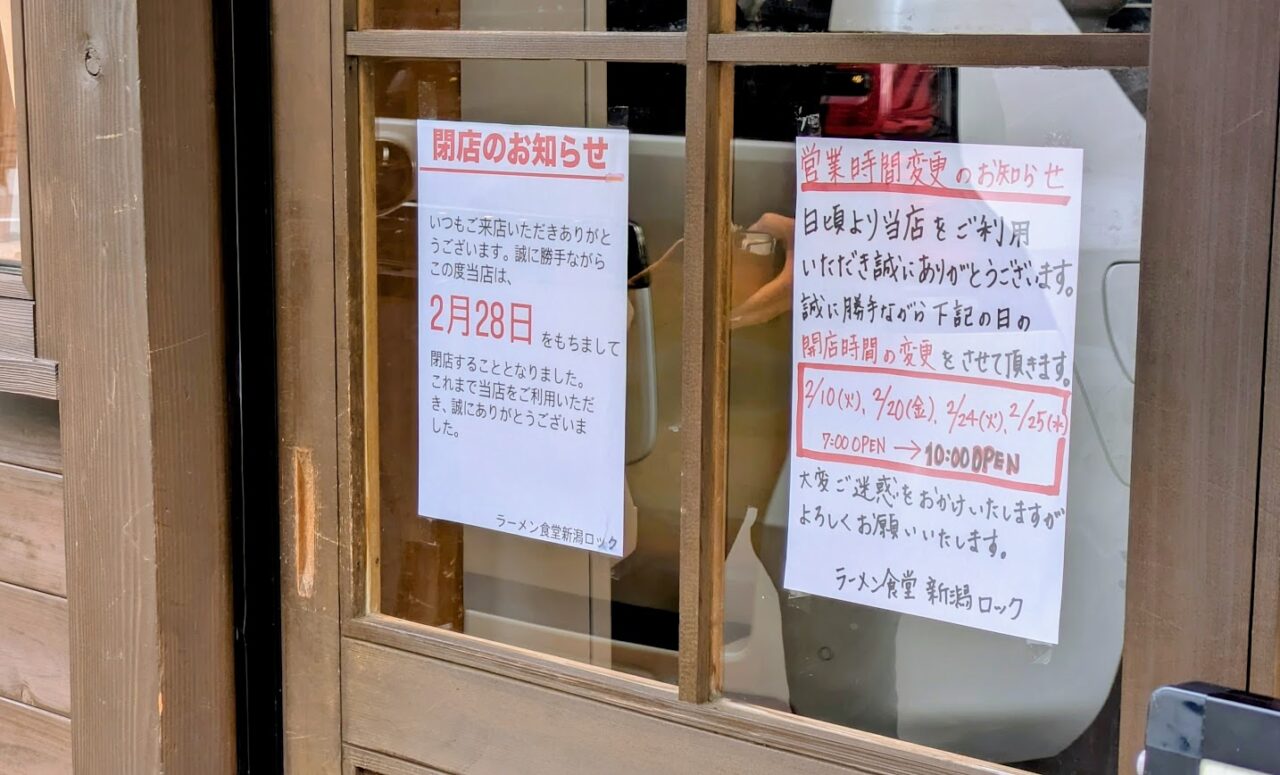 閉店のお知らせ
いつもご来店いただきありがと
うございます。誠に勝手ながら
この度当店は、
2月28日 をもちまして
閉店することとなりました。
これまで当店をご利用いただ
き、誠にありがとうございま
した。
ラーメン食堂新潟ロック
営業時間変更のお知らせ
日頃より当店をご利用
いただき誠にありがとうございます。
誠に勝手ながら下記の日の
開店時間の変更をさせて頂きます。
2/10(火)、2/20(金)、2/24(火)、2/25(水)
7:00 OPEN → 10:00 OPEN
大変ご迷惑をおかけいたしますが
よろしくお願いいたします。
ラーメン食堂 新潟ロック